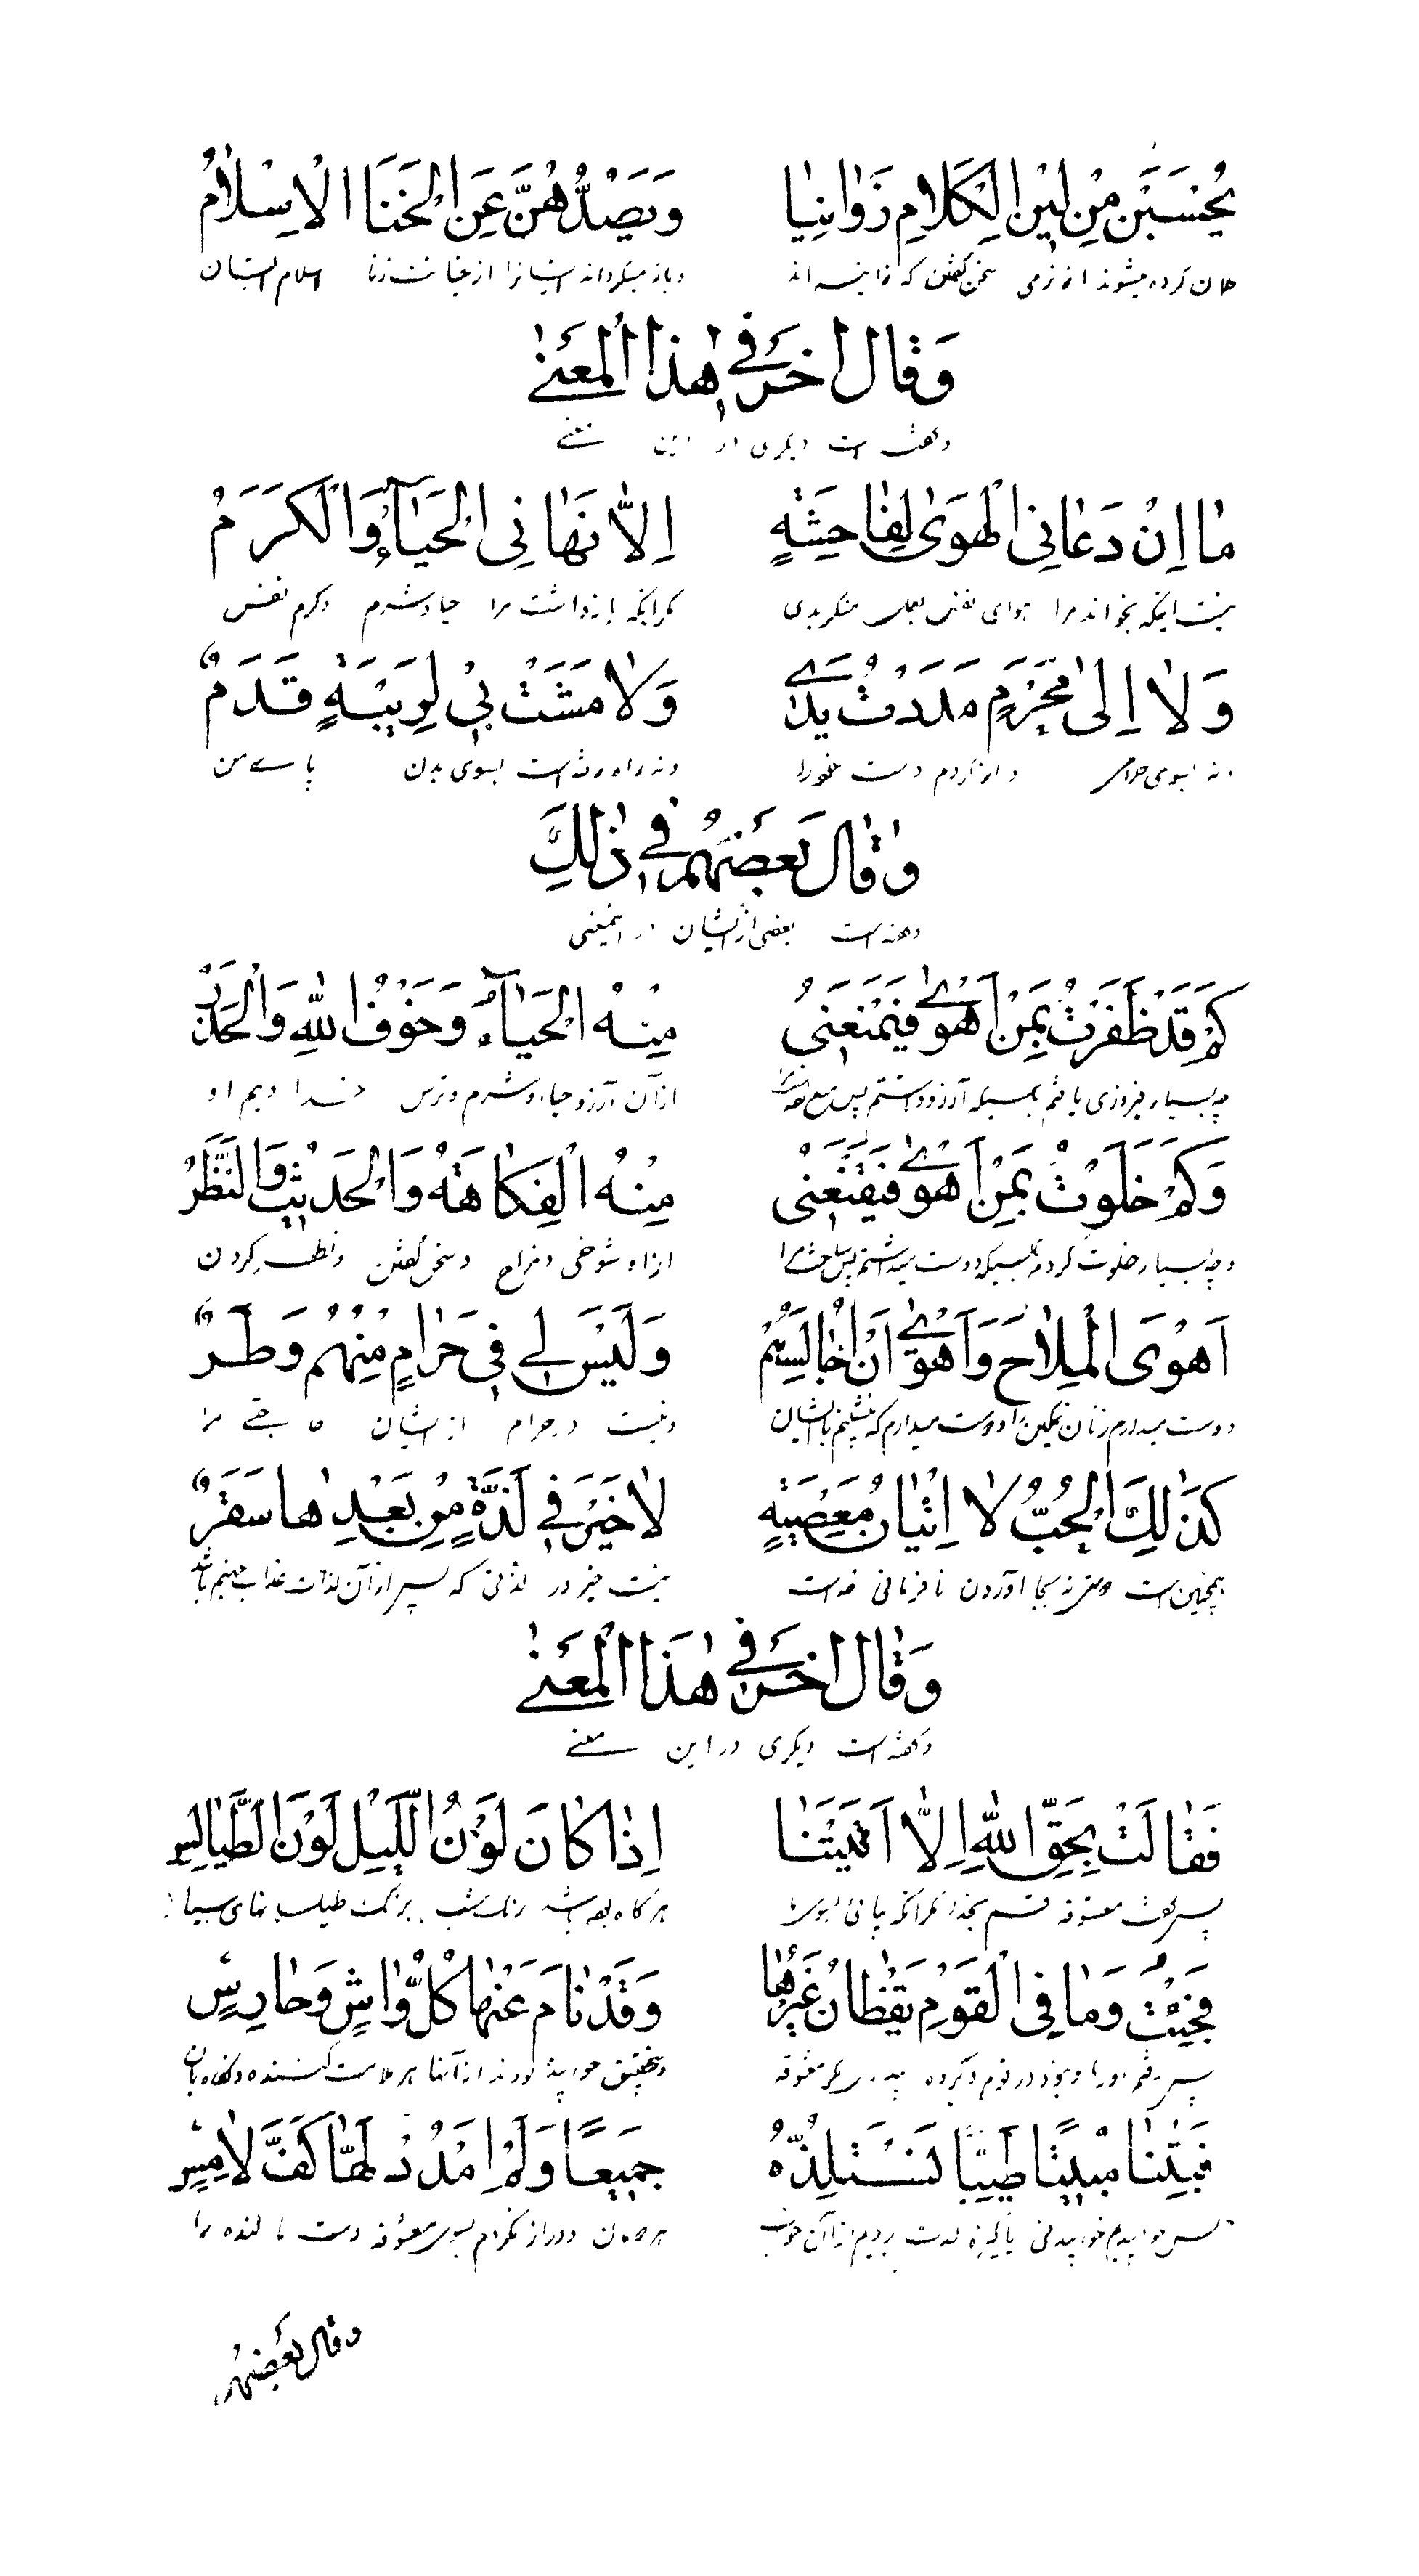 يُحْسَبْنَ مِنْ لِيْنِ الْكَلَامِ زَوَانِيًا وَيَصُدُّهُنَّ عَنِ الْخَنَا الْاِسْلَامُ
كرده ميشوند از نرمى سخن گفتن كه زانيه اند و باز ميگرداند ايشانرا از خيانت زنا اسلام ايشان
وَقَالَ اٰخَرُ فِي هٰذَا الْمَعْنٰى
و گفته است ديگرى در اين معنے
مَا اِنْ دَعَانِى الْهَوٰى لِفَاحِشَةٍ اِلَّا نَهَانِى الْحَيَآءُ وَالْكَرَمُ
نيست اينكه بخواند مرا هواى نفس بعمل منكر بدى مگر اينكه بازداشت مرا حيا و شرم و كرم نفس
وَلَا اِلٰى مَحْرَمٍ مَدَدْتُ يَدِے وَلَا مَشَتْ بِىْ لِرِيْبَةٍ قَدَمٌ
و نه بسوى حرامى دراز كردم دست خود را و نه راه رفته است بسوى بدن پاے من
وَقَالَ بَعْضُهُمْ فِي ذٰلِكَ
و گفته است بعضى از ايشان در اينمعنى
كَمْ قَدْ ظَفِرْتُ بِمَنْ اَهْوٰى فَيَمْنَعُنِىْ مِنْهُ الْحَيَآءُ وَخَوْفُ اللهِ وَالْحَذَرُ
چه بسيار فيروزى يافتم بكسيكه آرزو داشتم پس منع از آن آرزو حيا و شرم و ترس خدا و بيم او
وَكَمْ خَلَوْتُ بِمَنْ اَهْوٰى فَيَقْنَعُنِىْ مِنْهُ الْفِكَاهَةُ وَالْحَدِيْثُ وَالنَّظَرُ
و چه بسيار خلوت كردم بكسيكه دوست ميداشتم پس از او شوخى و مزاح و سخن گفتن و نظر كردن
اَهْوَى الْمِلَاحَ وَاَهْوٰى اَنْ اُجَالِسَهُمْ وَلَيْسَ لِى فِىْ حَرَامٍ مِنْهُمْ وَطَرٌ
دوست ميدارم زنان نمكين را و دوست ميدارم كه بنشينم با ايشان و نيست در حرام از ايشان حاجتے مرا
كَذٰلِكَ الْحُبُّ لَا اِتْيَانُ مَعْصِيَةٍ لَا خَيْرَ فِي لَذَّةٍ مِنْ بَعْدِهَا سَقَرٌ
همچنين است دوستى نه بجا آوردن نافرمانى نيست خير در لذتى كه پس از آن لذات عذاب جهنم باشد
وَقَالَ اٰخَرُ فِي هٰذَا الْمَعْنٰى
و گفته است ديگرى در اين معنے
فَقَالَتْ بِحَقِّ اللهِ اِلَّا اَتَيْتَنَا اِذَا كَانَ لَوْنُ اللَّيْلِ لَوْنَ الطَّيَالِسِ
پس گفت معشوقه قسم بخدا مگر آنكه بيائى بسوى ما هرگاه بوده باشد رنگ شب برنگ طيلسانهاى سياه
فَجِئْتُ وَمَا فِى الْقَوْمِ يَقْظَانُ غَيْرُهَا وَقَدْ نَامَ عَنْهَا كُلُّ وَاشٍ وَحَارِسٍ
پس رفتم و نبود در قوم مگر معشوقه و بتحقيق خوابيده بودند از آنها هر ملامت كننده و نگاهبان
فَبِتْنَا مَبِيْتًا طَيِّبًا نَسْتَلِذُّهُ جَمِيْعًا وَلَمْ اَمْدُدْ لَهَا كَفَّ لَامِسٍ
پس خوابيديم خوابيدنى پاكيزه لذت برديم از آن خواب و دراز نكردم بسوى معشوقه دست را
وقال بعضهم